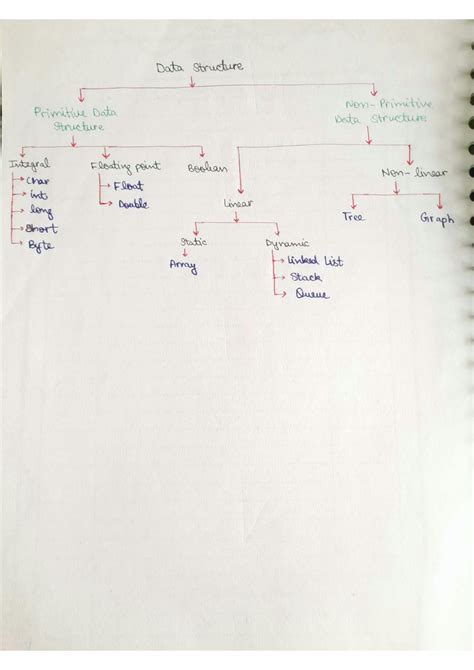 Data Structure
Primitive Data
Structure
Non-Primitive
Data Structure
Integral
Floating point
Boolian
Linear
Non-linear
Char
int
long
Short
Byte
Float
Double
Static
Dynamic
Tree
Graph
Array
Linked List
Stack
Queue